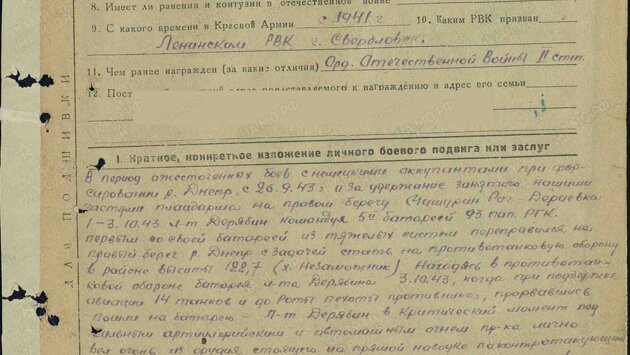 8. Имеет ли ранения и контузии в отечественной войне
9. С какого времени в Красной Армии с 1941 г. 10. Каким РВК призван
Ленинским РВК г. Свердловск.
11. Чем ранее награжден (за какие отличия) Орд. Отечественной Войны II степ.
12. Пост адрес представляемого к награждению и адрес его семьи
ДЛЯ ПОДШИВКИ
I. Краткое, конкретное изложение личного боевого подвига или заслуг
В период ожесточенных боев с немецкими аккупантами при фор-
сировании р. Днепр с 26.9.43 г и за удержание занятого нашими
частями плацдарма на правом берегу Мишурин Рог - Дериевка
1-3.10.43 л-т Дерябин командуя 5й батареей 93 пап. РГК.
первым со своей батареей из тяжелых систем переправился на
правый берег р. Днепр с задачей стать на противотанковую оборону
в районе высоты 122,7 (х. Незаможник) Находясь в противотан-
ковой обороне батарея л-та Дерябина 3.10.43, когда при поддержке
авиации 14 танков и до роты пехоты противника, прорвавшись
пошли на батарею - Л-т Дерябин в критический момент под
сильным артиллерийским и автоматным огнем пр-ка лично
вел огонь из орудия стоящего на прямой наводке по контратакующим